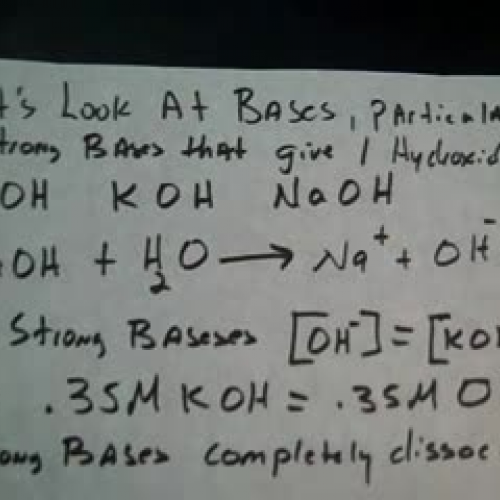 t's Look At Bases, Particula
trong Bases that give 1 Hydroxid
OH KOH NaOH
OH + H₂O ⟶ Na⁺ + OH⁻
Strong Baseses [OH⁻] = [KO
.35M KOH = .35M O
ong Bases completely dissoc